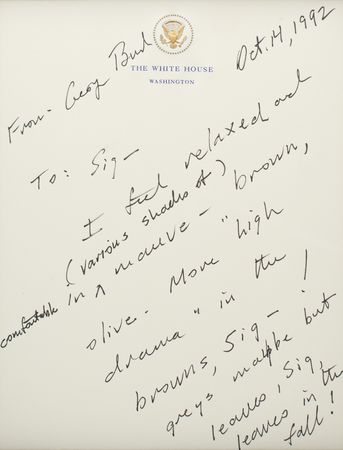 Oct. 14, 1992
From - Georg Bush
THE WHITE HOUSE
WASHINGTON
To: Sig -
I feel relaxed and
comfortable in ^ (various shades of)
mauve - brown,
olive. More "high
drama" in the
browns, Sig - !
greys maybe but
leaves, Sig,
leaves in the
fall!